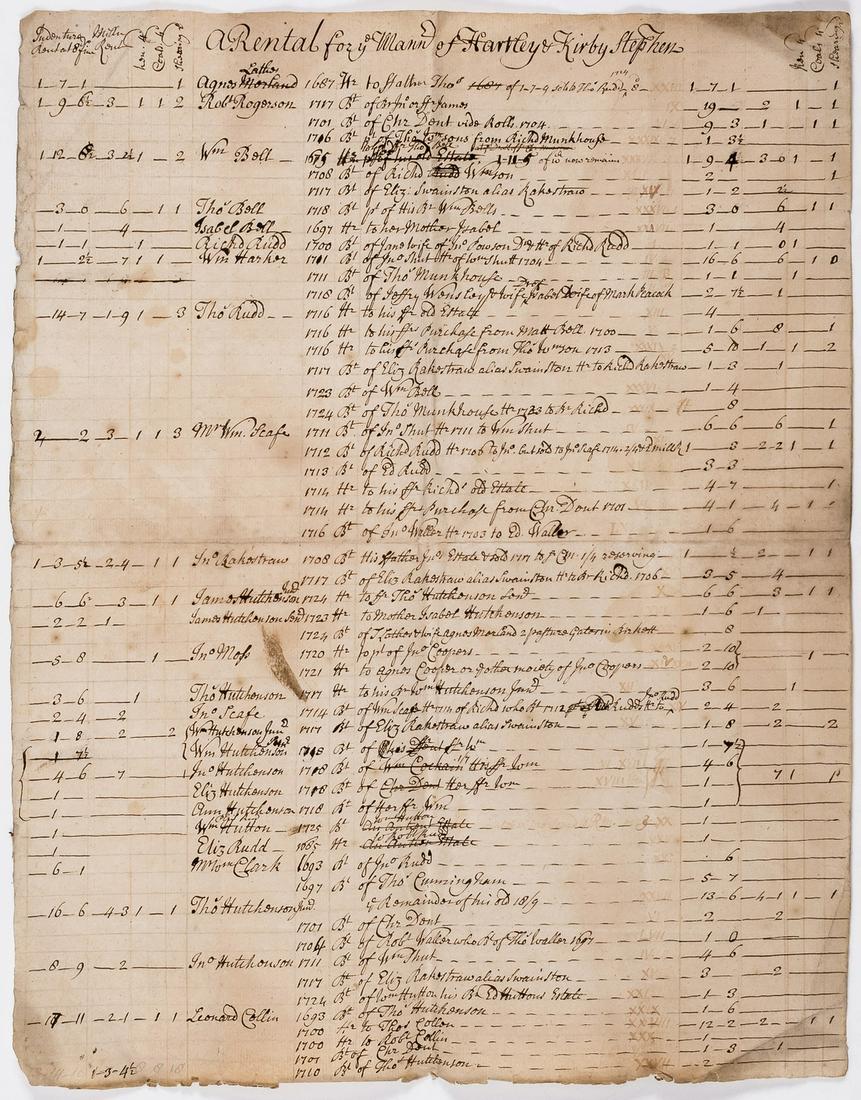 A Rental for ye Mannd of Hartley & Kirby Stephen
Indenture Rent Milln Rent Hen 4 Coals 4 Shearing
Hen 4 Coals 4 Shearing
1 - 7 - 1 1 Agnes Morland 1687 Hr to ffather Thos 1687 of 1-7-9 1 - 7 - 1 1
Lathes
1 - 9 - 6½ - 3 - 1 1 2 Robt Rogerson 1717 Bt of Br Jno or Sr James 19 - - 2 1 - 1
1701 Bt of Chr Dent vide Rolls 1704 9 - 3 1 1 1
1706 Bt pt of Thos Wmsons from Richd Munkhouse 1 - 3½
1 - 12 - 8½ - 3 - 2½ 1 - 2 Wm Bell 1675 Hr old Estate 1-11-5 of wch now remain 1 - 9 - 4 3 0 1 1
1708 Bt of Richd Rudd Wmson 2 1
1717 Bt of Eliz: Swainston alias Rakestraw 1 - 2 2½
3 - 0 - 6 - 1 1 Thos Bell 1718 Bt pt of His Br Wm Bells 3 - 0 6 1 1
1 - 4 Isabel Bell 1697 Hr to her Mother Isabel 1 4
1 - 1 1 Richd Rudd 1700 Bt of Jane wife of Jno Cowson Dr & Hr of Richd Rudd 1 - 1 0 1
1 - 2½ - 7 1 1 Wm Harker 1701 Bt of Jno Shut Hr of Wm Shutt 1704 16 - 6 6 1 0
1711 Bt of Thos Munkhouse 1 - 1 1
1718 Bt of Jeffry Wensley & wife Isabel & wife of Mark Peacock 2 - 7½ 1
14 - 7 - 1 - 9 1 3 Thos Rudd 1716 Hr to his ffr old Estate 4
1716 Hr to his ffrs Purchase from Matt Bell 1700 1 - 6 8 1
1716 Hr to his ffrs Purchase from Thos Wmson 1713 5 - 10 1 1 2
1717 Bt of Eliz Rakestraw alias Swainston Hr to Richd Rakestraw 1 - 3 1
1723 Bt of Wm Bell 1 - 4
1724 Bt of Thos Munkhouse Hr 1723 to Br Richd 8
2 2 3 1 1 3 Mr Wm Scafe 1711 Bt of Jno Shut Hr 1711 to Wm Shut 6 - 6 6 1
1712 Bt of Richd Rudd Hr 1706 to Jno but sold to Jno Scafe 1714 1 - 8 2 - 2 1 1
1713 Bt of Ed Rudd 3 - 3
1714 Hr to his ffr Richds old Estate 4 - 7 1
1714 Hr to his ffrs Purchase from Chr Dent 1701 4 - 1 4 1 1
1716 Bt of Jno Waller Hr 1703 to Ed Waller 1 - 6
1 - 3 - 5½ - 2 - 4 1 1 Jno Rakestraw 1708 Bt His ffather Jnos Estate & sold 1717 to 1/4 reserving 1 ½ 2 1 1
1717 Bt of Eliz Rakestraw alias Swainston Hr to Br Richd 1706 3 - 5 4
6 - 6½ - 3 1 1 James Hutchenson Jund 1724 Hr to ffr Thos Hutchenson Send 6 - 6 3 1 1
2 - 2 - 1 James Hutchenson Send 1723 Hr to Mother Isabel Hutchenson 1 - 6 1
1724 Bt of T Lathes & wife Agnes Morland 2 pasture Gates in Birkett 8
5 - 8 1 Jno Moss 1720 Hr to pt of Jno Coopers 2 - 10 1
1721 Hr to Agnes Cooper or other moiety of Jno Coopers 2 - 10
3 - 6 1 Thos Hutchenson 1717 Hr to his Br Wm Hutchenson Jund 3 - 6 1
2 - 4 - 2 Jno Scafe 1714 Bt of Wm Scafe Hr 1714 of Richd who Bt 1712 2 - 4 2
1 8 2 2 Wm Hutchenson Jund 1717 Bt of Eliz Rakestraw alias Swainston 1 - 8 2 2
1 7½ Wm Hutchenson Send 1718 Bt of his ffr Wm 1 - 7½
4 - 6 - 7 Jno Hutchenson 1718 Bt of Wm Cockain His ffr Wm 4 - 6 7 1 1
1 Eliz Hutchenson 1718 Bt of Chr Dent Her ffr Wm 1
1 Ann Hutchenson 1718 Bt of Her ffr Wm 1
1 Wm Hutton 1725 Bt An Antient Estate 1
1 Eliz Rudd 1665 Hr An Antient Estate 1
6 - 1 Mr Wm Clark 1693 Bt of Jno Rudd 6
1697 Bt of Thos Cunningham 5 - 7
16 - 6 - 4 - 3 1 1 Thos Hutchenson Jund ye Remainder of his old 18/9 13 - 6 4 - 1 1 1
1701 Bt of Chr Dent 2 2
1704 Bt of Robt Waller who Bt of Thos Waller 1697 1 - 0
8 - 9 - 2 Jno Hutchenson 1711 Bt of Wm Shut 4 - 6
1717 Bt of Eliz Rakestraw alias Swainston 3 2
1724 Bt of Wm Hutton his Br Ed Huttons Estate 1 - 3
17 - 11 - 2 - 1 1 1 Leonard Collin 1693 Bt of Thos Hutchenson 1 - 6
1700 Hr to Thos Collen 12 - 2 2 1 1
1700 Hr to Robt Collin
1701 Bt of Chr Dent 1 - 3 1
1710 Bt of Thos Hutchenson 2
1 - 3 - 4½